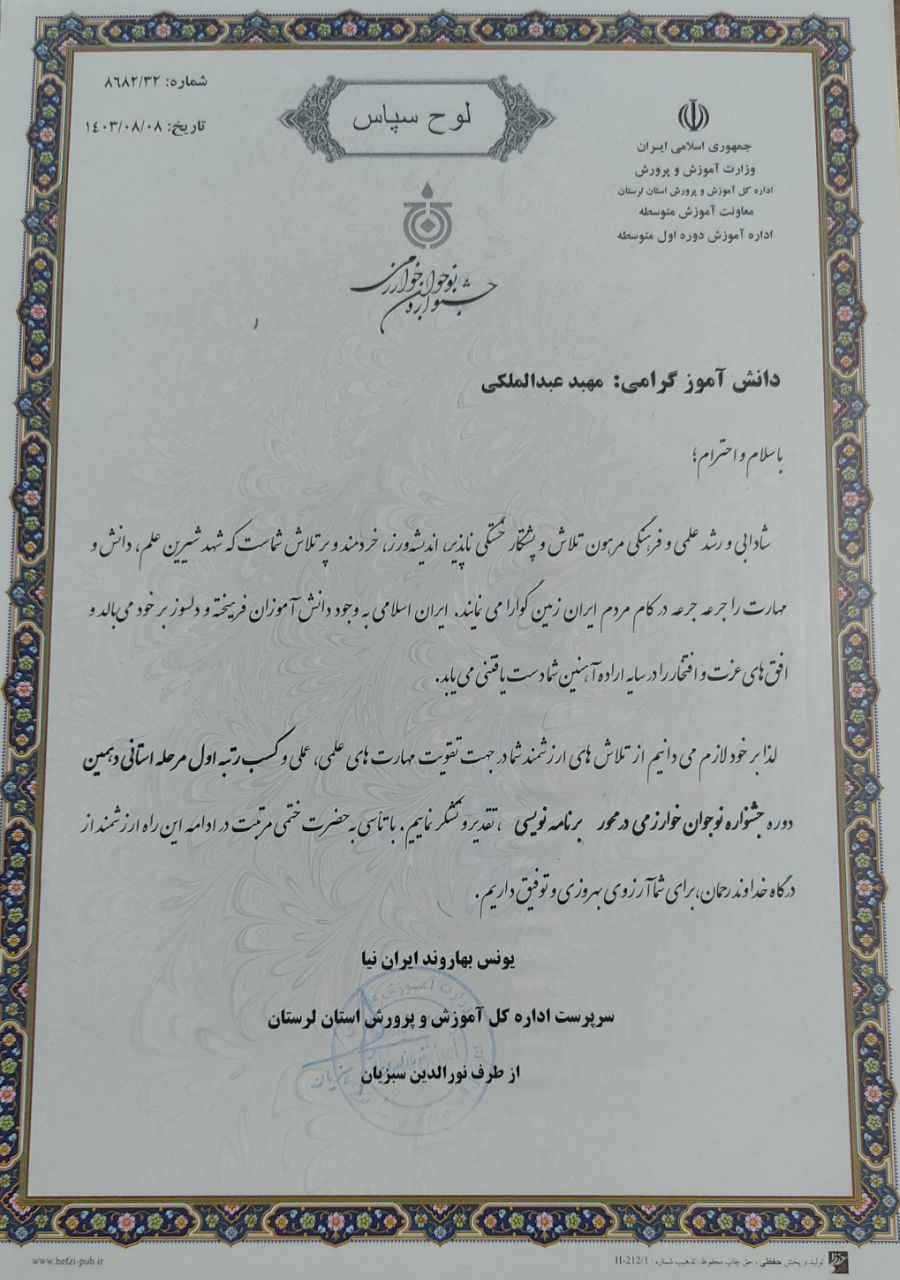 لوح سپاس
شماره: ۸۶۸۲/۳۲
تاریخ: ۱۴۰۳/۰۸/۰۸
جمهوری اسلامی ایران
وزارت آموزش و پرورش
اداره کل آموزش و پرورش استان لرستان
معاونت آموزش متوسطه
اداره آموزش دوره اول متوسطه
جشنواره نوجوان خوارزمی
دانش آموز گرامی: مهبد عبدالملکی
با سلام و احترام؛
شادابی و رشد علمی و فرهنگی مرهون تلاش و پشتکار خستگی ناپذیر، اندیشه‌ورز، خردمند و پر تلاش شماست که شهد شیرین علم، دانش و
مهارت را جرعه جرعه در کام مردم ایران زمین گوارا می نمایند. ایران اسلامی به وجود دانش آموزان فرهیخته و دلسوز بر خود می‌بالد و
افق های عزت و افتخار را در سایه اراده آهنین شما دست یافتنی می یابد.
لذا بر خود لازم می دانیم از تلاش های ارزشمند شما در جهت تقویت مهارت های علمی، عملی و کسب رتبه اول مرحله استانی دهمین
دوره جشنواره نوجوان خوارزمی در محور برنامه نویسی ، تقدیر و تشکر نماییم. با تاسی به حضرت ختمی مرتبت در ادامه این راه ارزشمند از
درگاه خداوند رحمان، برای شما آرزوی بهروزی و توفیق داریم.
یونس بهاروند ایران نیا
سرپرست اداره کل آموزش و پرورش استان لرستان
از طرف نورالدین سبزیان
www.hefzi-pub.ir
تولید و پخش حفظی ، حق چاپ محفوظ. تذهیب شماره : H-212/1